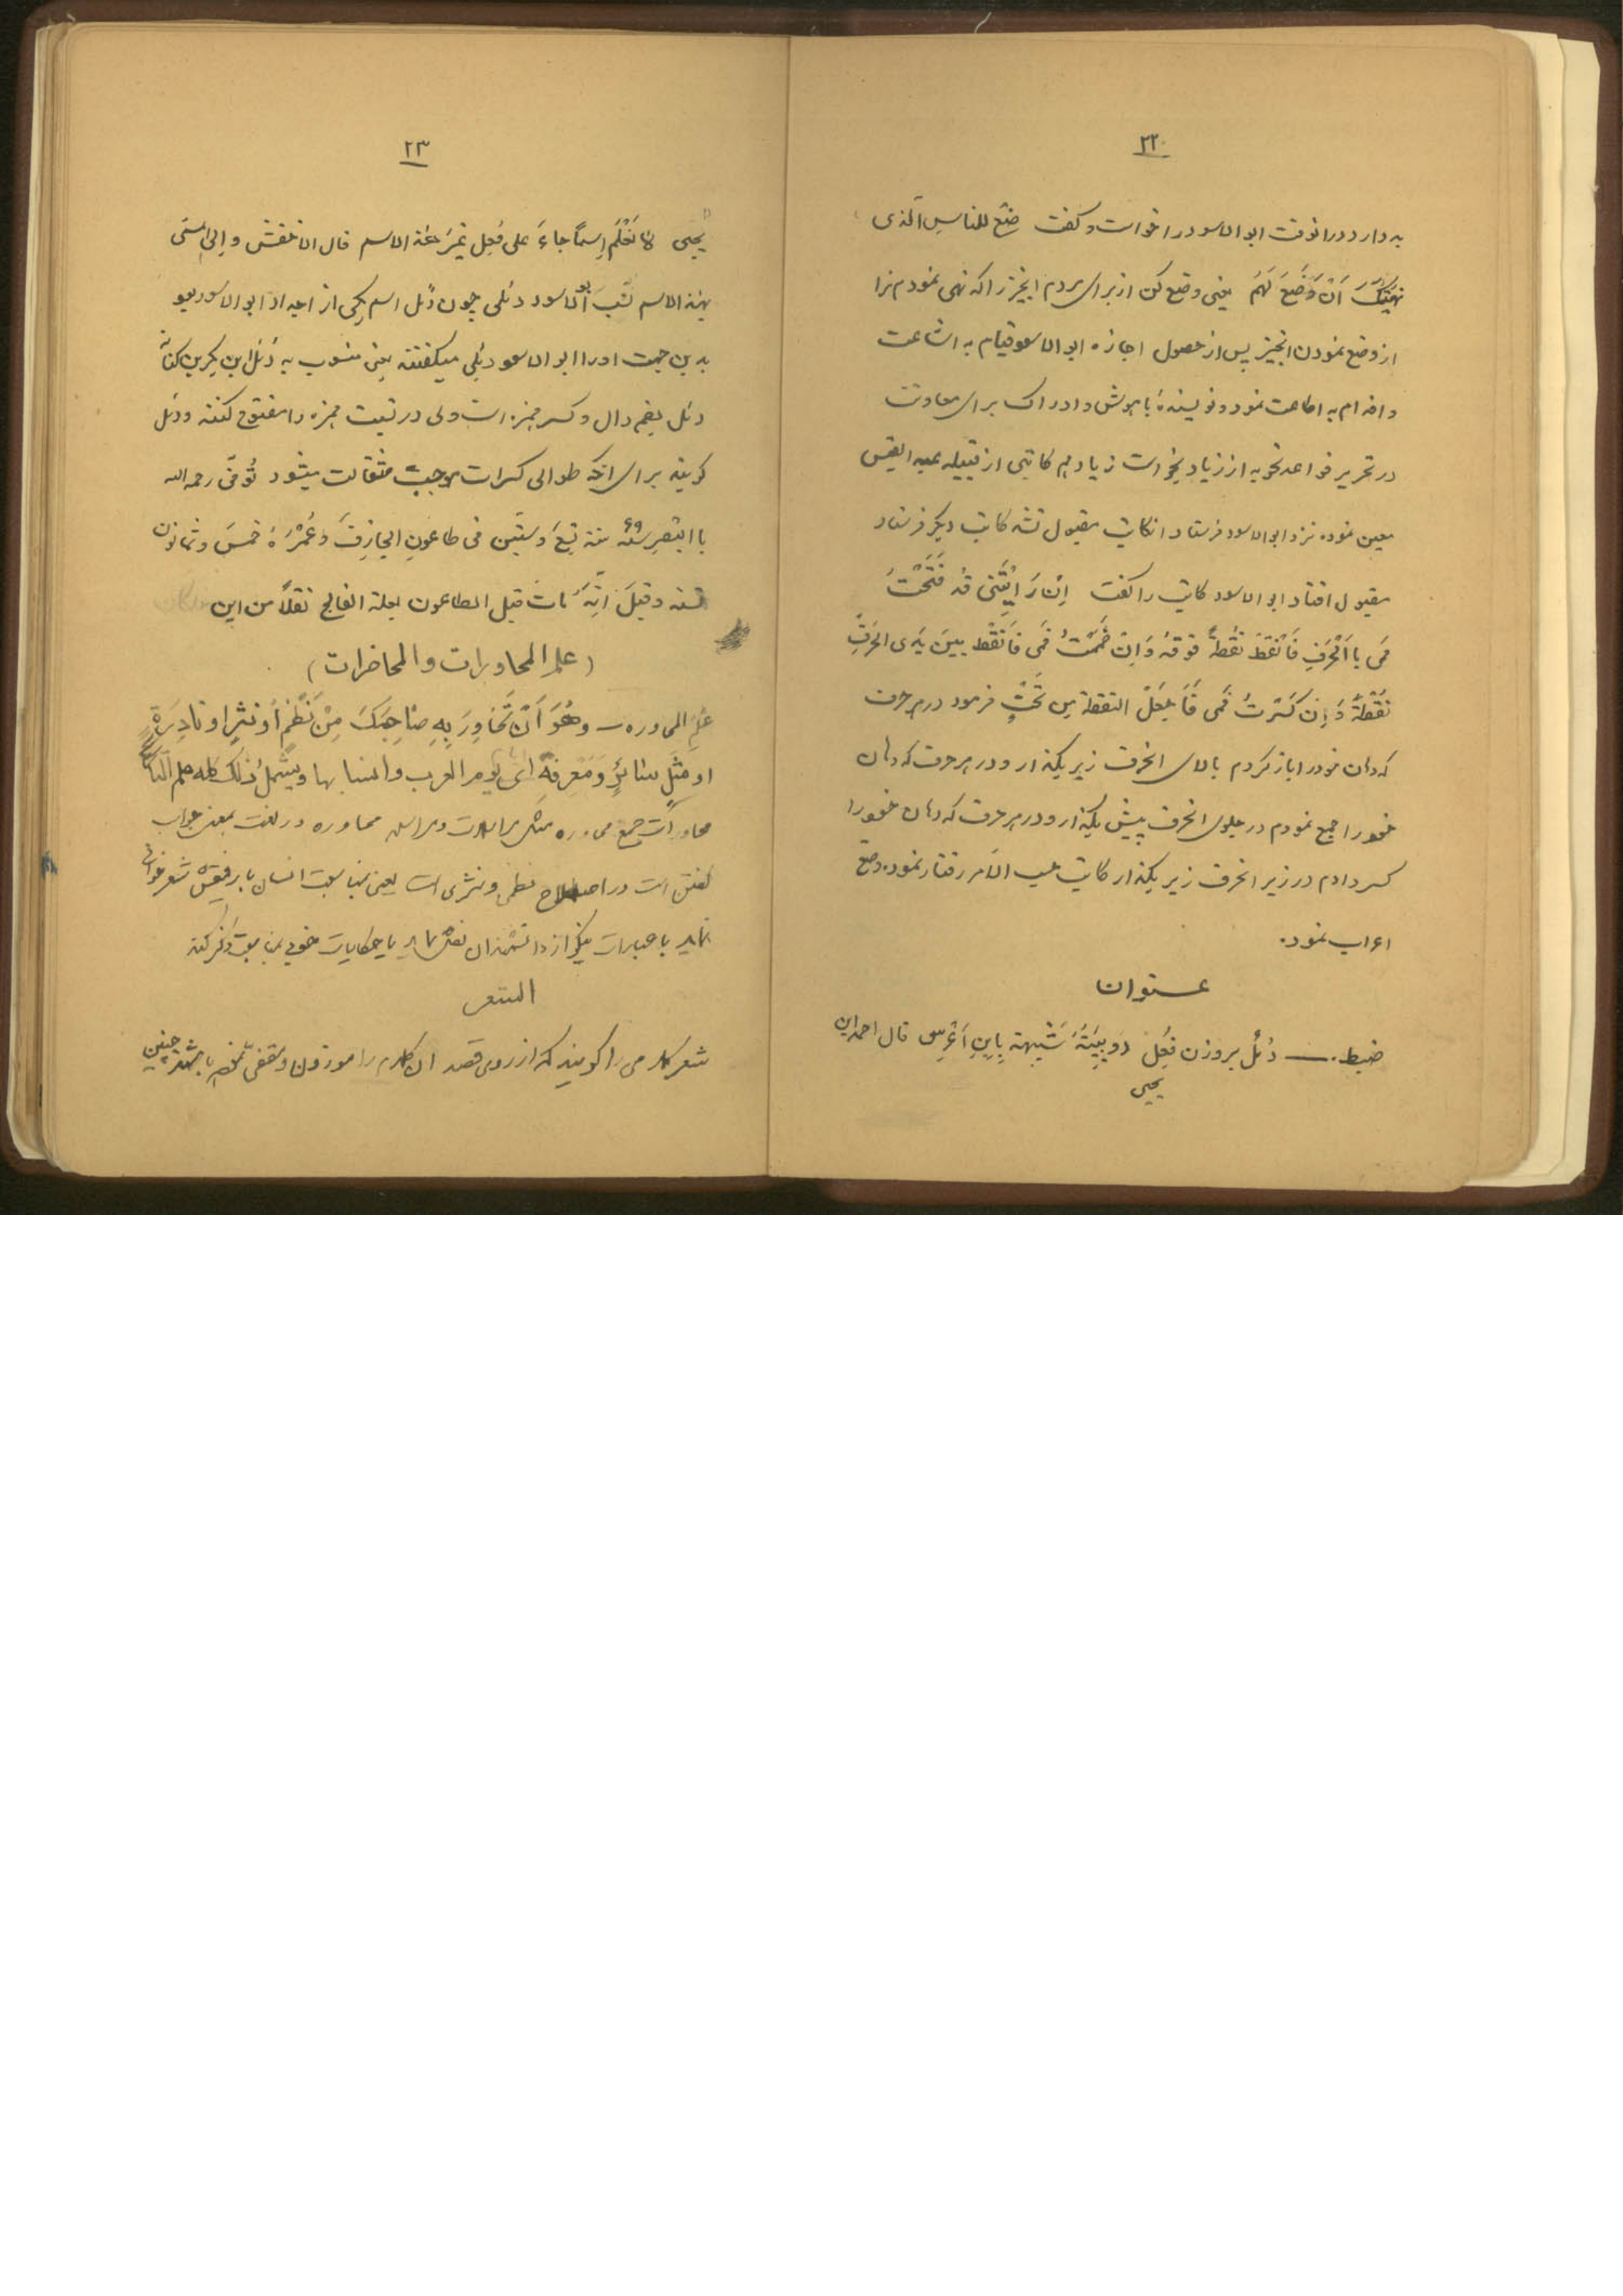 ۲۲
به دارد درانوقت ابوالاسود را خواست و گفت ضَعْ للناسِ الَّذی
نَهَیْتُکَ اَنْ وَضَعَ لَهُمُ یعنی وضع کن از برای مردم انچیز را که نهی نمودم ترا
از وضع نمودن انچیز پس از حصول اجازه ابوالاسود قیام به اشاعت
و اقدام به اطاعت نمود و نویسندهٔ با هوش و ادراک برای معاونت
در تحریر قواعد نحویه از زیاد بخواست زیاد هم کاتبی از قبیله عبد القیس
معین نموده نزد ابوالاسود فرستاد انکاتب مقبول نشد کاتب دیگر فرستاد
مقبول افتاد ابوالاسود کاتب را گفت اِنْ رَاَیْتَنی قَدْ فَتَحْتُ
فَمی بِالْحَرْفِ فَانْقُطْ نُقْطَةً فَوْقَهُ وَاِنْ ضَمَمْتُ فَمی فَانْقُطْ بینَ یَدَیِ الحَرْفِ
نُقْطَةً وَ اِنْ کَسَرْتُ فَمی فَاجْعَلْ النقطة مِن تَحْتِ فرمود در هر حرف
که دهان خود را باز کردم بالای انحرف زبر بگذار و در هر حرف که دهان
خود را جمع نمودم در جلوی انحرف پیش بگذار و در هر حرف که دهان خود را
کسر دادم در زیر انحرف زیر بگذار کاتب حسب الامر رفتار نموده وضع
اعراب نمود.
عنوان
ضبط. — دُئِل بر وزن فُعِل دُوَیْبَةٌ شَبیهة بِابنِ عُرْسٍ قال احمد ابن
یحیی
۲۳
یحیی لا نَعْلَمُ اِسْماً جاءَ علی فُعِل غَیْرَ هٰذَا الاسم قال الاخفش و اِلی المُسَمّی
بهذا الاسم نُسِبَ ابوالاسود دئلی چون دُئل اسم یکی از اجداد ابوالاسود بود
بدین جهت او را ابوالاسود دئلی میگفتند یعنی منسوب به دُئل ابن بکر بن کنانه
دئل بضم دال و کسر همزه است ولی در نسبت همزه را مفتوح کنند و دئلی
گویند برای انکه طوالی کسرات موجب ثقالت میشود تُوُفّی رحمه الله
بالبصرة سنه تِسْعَ وَ سِتّین فی طاعونِ الجارِفِ وَ عُمْرُهُ خمسَ و ثمانون
سنه و قیلَ اَنَّهُ ماتَ قبل الطاعون بعلة الفالج نقلاً من ابن
(علم المحاورات والمحاضرات)
علم المحاوره — وهُوَ اَنْ تُحَاوِرَ بِهِ صَاحِبَکَ مِنْ نَظْمٍ اَوْ نَثْرٍ او نادِرَةٍ
او مَثَلٍ سائرٍ وَ مَعْرِفَةِ ایّام العرب وانسابها ویشمل ذلک کله علم
محاورات جمع محاوره محاوره در لغت بمعنی جواب
گفتن است در اصطلاح نظمی و نثری است یعنی بمناسبت انسان با رفیقش شعر خوانی
نماید یا عبارات نیکو از دانشمندان نقل نماید یا حکایات خوبی بمناسبت ذکر کند
الشعر
شعر کلامی را گویند که از روی قصد ان کلام را موزون و مقفی نموده باشند